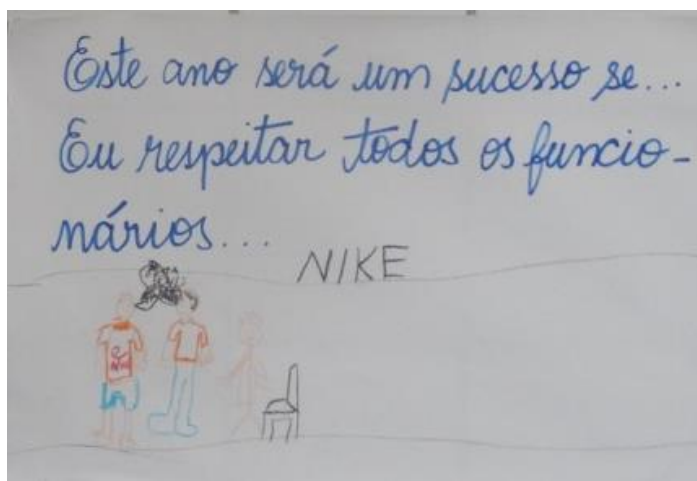 Este ano será um sucesso se...
Eu respeitar todos os funcio-
nários...
NIKE